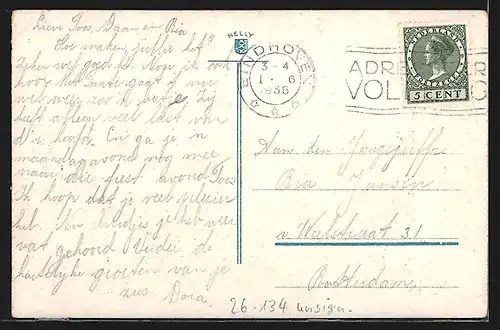 Lieve Toos, Daan en Ria
Hoe maken jullie het?
Zeker wel goed hè. Nou ik ook
hoor. Met tante gaat 't nu
wel weer zoo
heeft altijd veel last van
d'r hoofd. En ga je 'n
maandagavond nog mee
naar die feest avond Toos
Ik hoop dat je veel plezier
heb. Nu luidjes je heb weer
wat gehoord Verder de
hartelijke groeten van je
zus Dora.
NELLY
EINDHOVEN
3-4
1 - 6
1938
ADRE
VOL
NEDERLAND
5 CENT
Aan den Jongejuffr
Ria Jansen
v. Weelstraat 31
Rotterdam.
26-134 unsign.